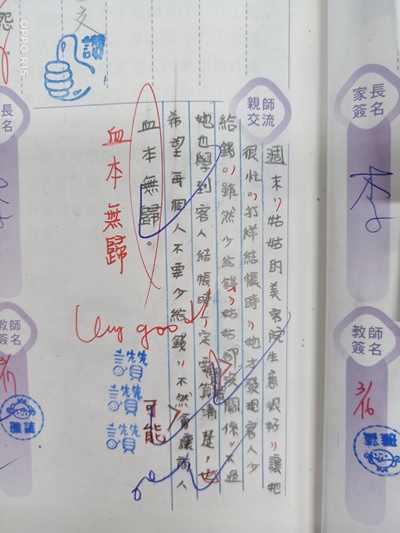 讚
親師交流
週末，姑姑的美容院生意很好，讓她
很忙。打烊結帳時，她發現客人少
給錢。雖然少給錢，姑姑卻說沒關係，不過
她也學到客人結帳時，一定要算清楚，也
希望每個人不要少給錢，不然會讓商人
血本無歸。
血本無歸
可能
Very good!
讚讚
讚讚
讚讚
長
名
家長
簽名
李
教師
簽名
3/16
師
名
OPPO R15